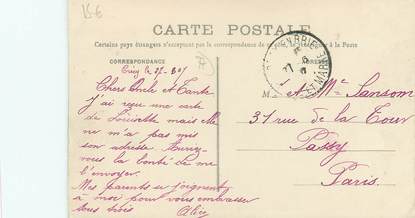 CARTE POSTALE
Certains pays étrangers n'acceptent pas la correspondance de ce côté, se renseigner à la Poste
CORRESPONDANCE
ADRESSE
Chers Oncle et Tante
J'ai reçu une carte
de mais elle
ne m'a pas mis
son adresse. Aurez
vous la bonté de me
l'envoyer.
Mes parents se joignent
à moi pour vous embrasser
tous trois
Alice
M et Me Sansom
31 rue de la Tour
Passy
Paris.